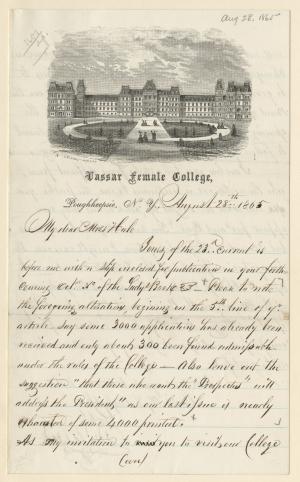 Aug 28, 1865
Vassar Female College,
Poughkeepsie, N. Y. August 28th 1865
My dear Mrs Hale
Yours of the 23d current is
before me with a slip enclosed for publication in your forth
coming Oct. No of the Lady's Book. Please to note
the foregoing alteration, begining on the 5th line of yr
article say some 3000 applications has already been
received and only about 300 been found admissable
under the rules of the College — Also leave out the
suggestion "that those who want the Prospectus" will
address the President," as our last issue is nearly
exhausted of some 4000 printed.
As my invitation to you to visit our College
(over)